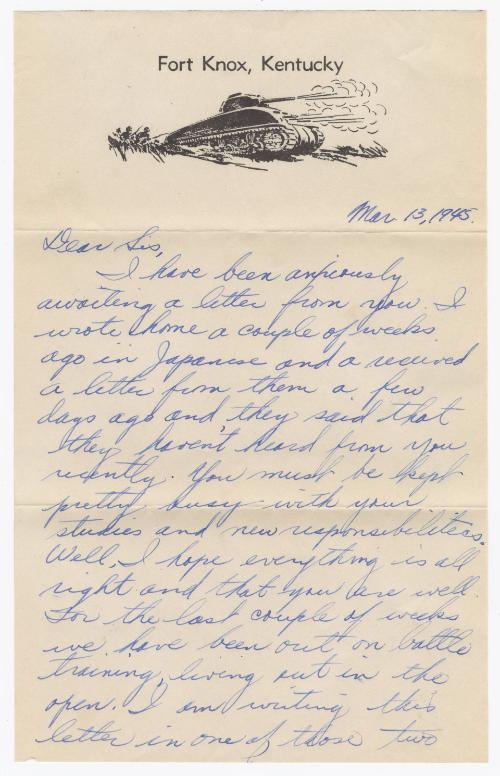 Fort Knox, Kentucky
Mar 13, 1945.
Dear Sis,
I have been anxiously
awaiting a letter from you. I
wrote home a couple of weeks
ago in Japanese and a received
a letter from them a few
days ago and they said that
they haven't heard from you
recently. You must be kept
pretty busy with your
studies and new responsibilities.
Well, I hope everything is all
right and that you are well.
For the last couple of weeks
we have been out on battle
training, living out in the
open. I am writing this
letter in one of those two